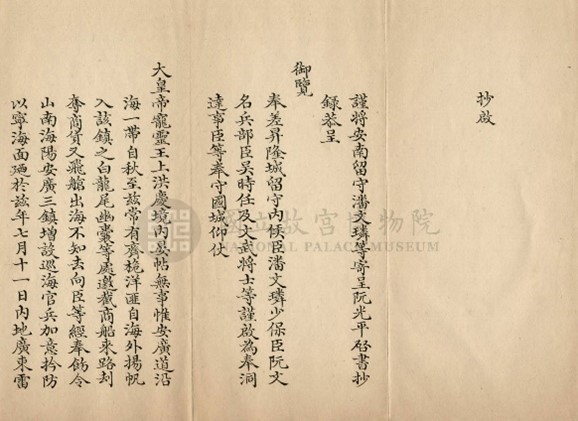 抄啟
謹將安南留守潘文璘等寄呈阮光平啓書抄
錄恭呈
御覽
奉差昇隆城留守內候臣潘文璘少保臣阮文
名兵部臣吳時任及文武將士等謹啟為奉洞
達事臣等奉守國城仰仗
大皇帝寵靈王上洪慶境內晏帖無事惟安廣道沿
海一帶自秋至茲常有齊桅洋匪自海外揚帆
入該鎮之白龍尾幽雲等處邀截商船來路刦
奪商貨又飛艙出海不知去向臣等經奉飭令
山南海陽安廣三鎮增設巡海官兵加意扵防
以寧海面廼於茲年七月十一日內地廣東雷
國立故宮博物院
NATIONAL PALACE MUSEUM